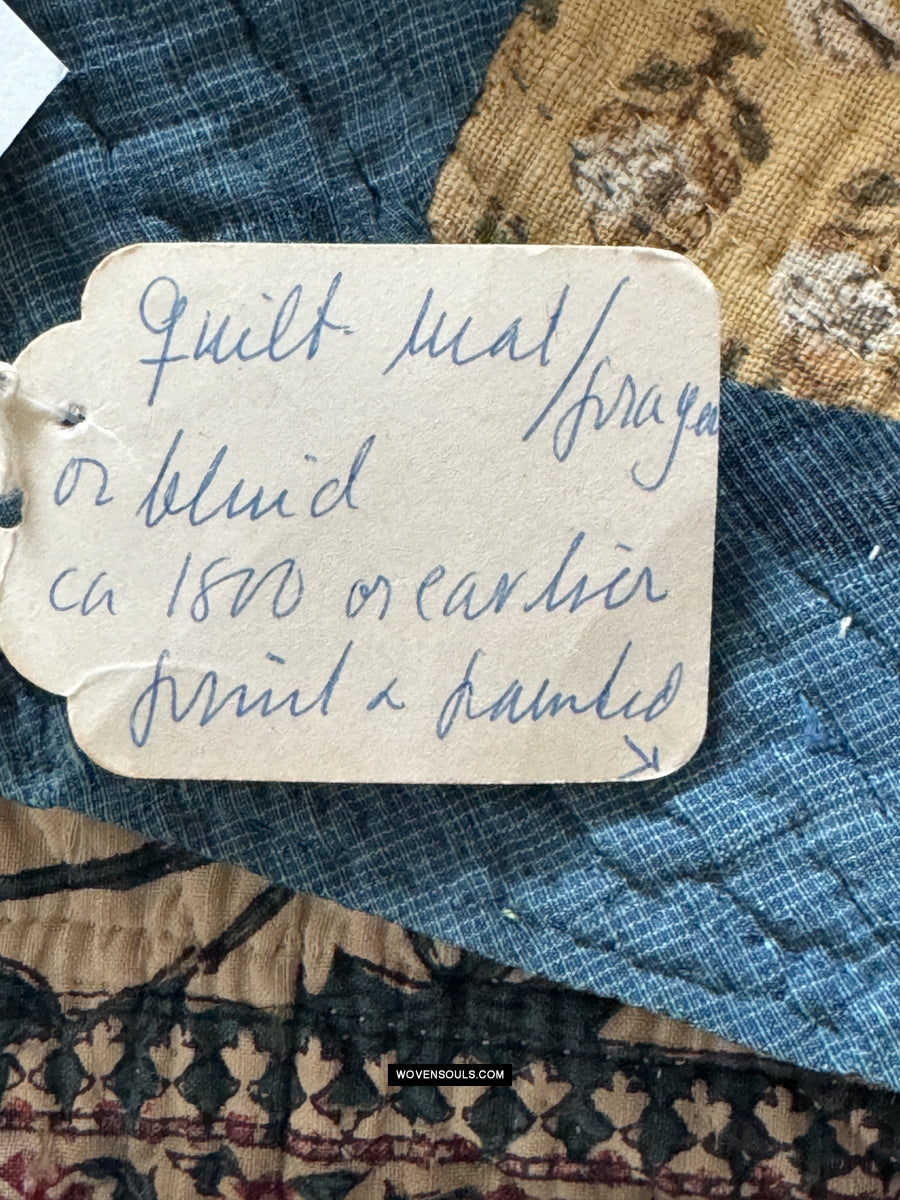 quilt mat/
or blind
ca 1800 or earlier
print & painted
↘
WOVENSOULS.COM